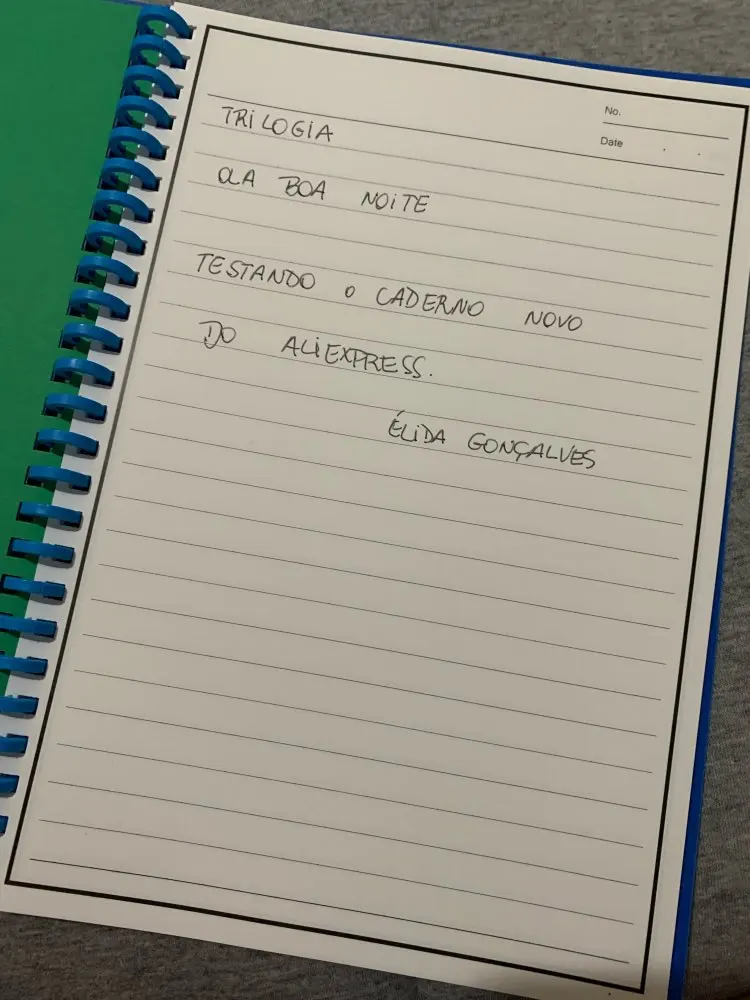 No.
Date
TRILOGIA
OLA BOA NOITE
TESTANDO O CADERNO NOVO
DO ALIEXPRESS.
ÉLIDA GONÇALVES